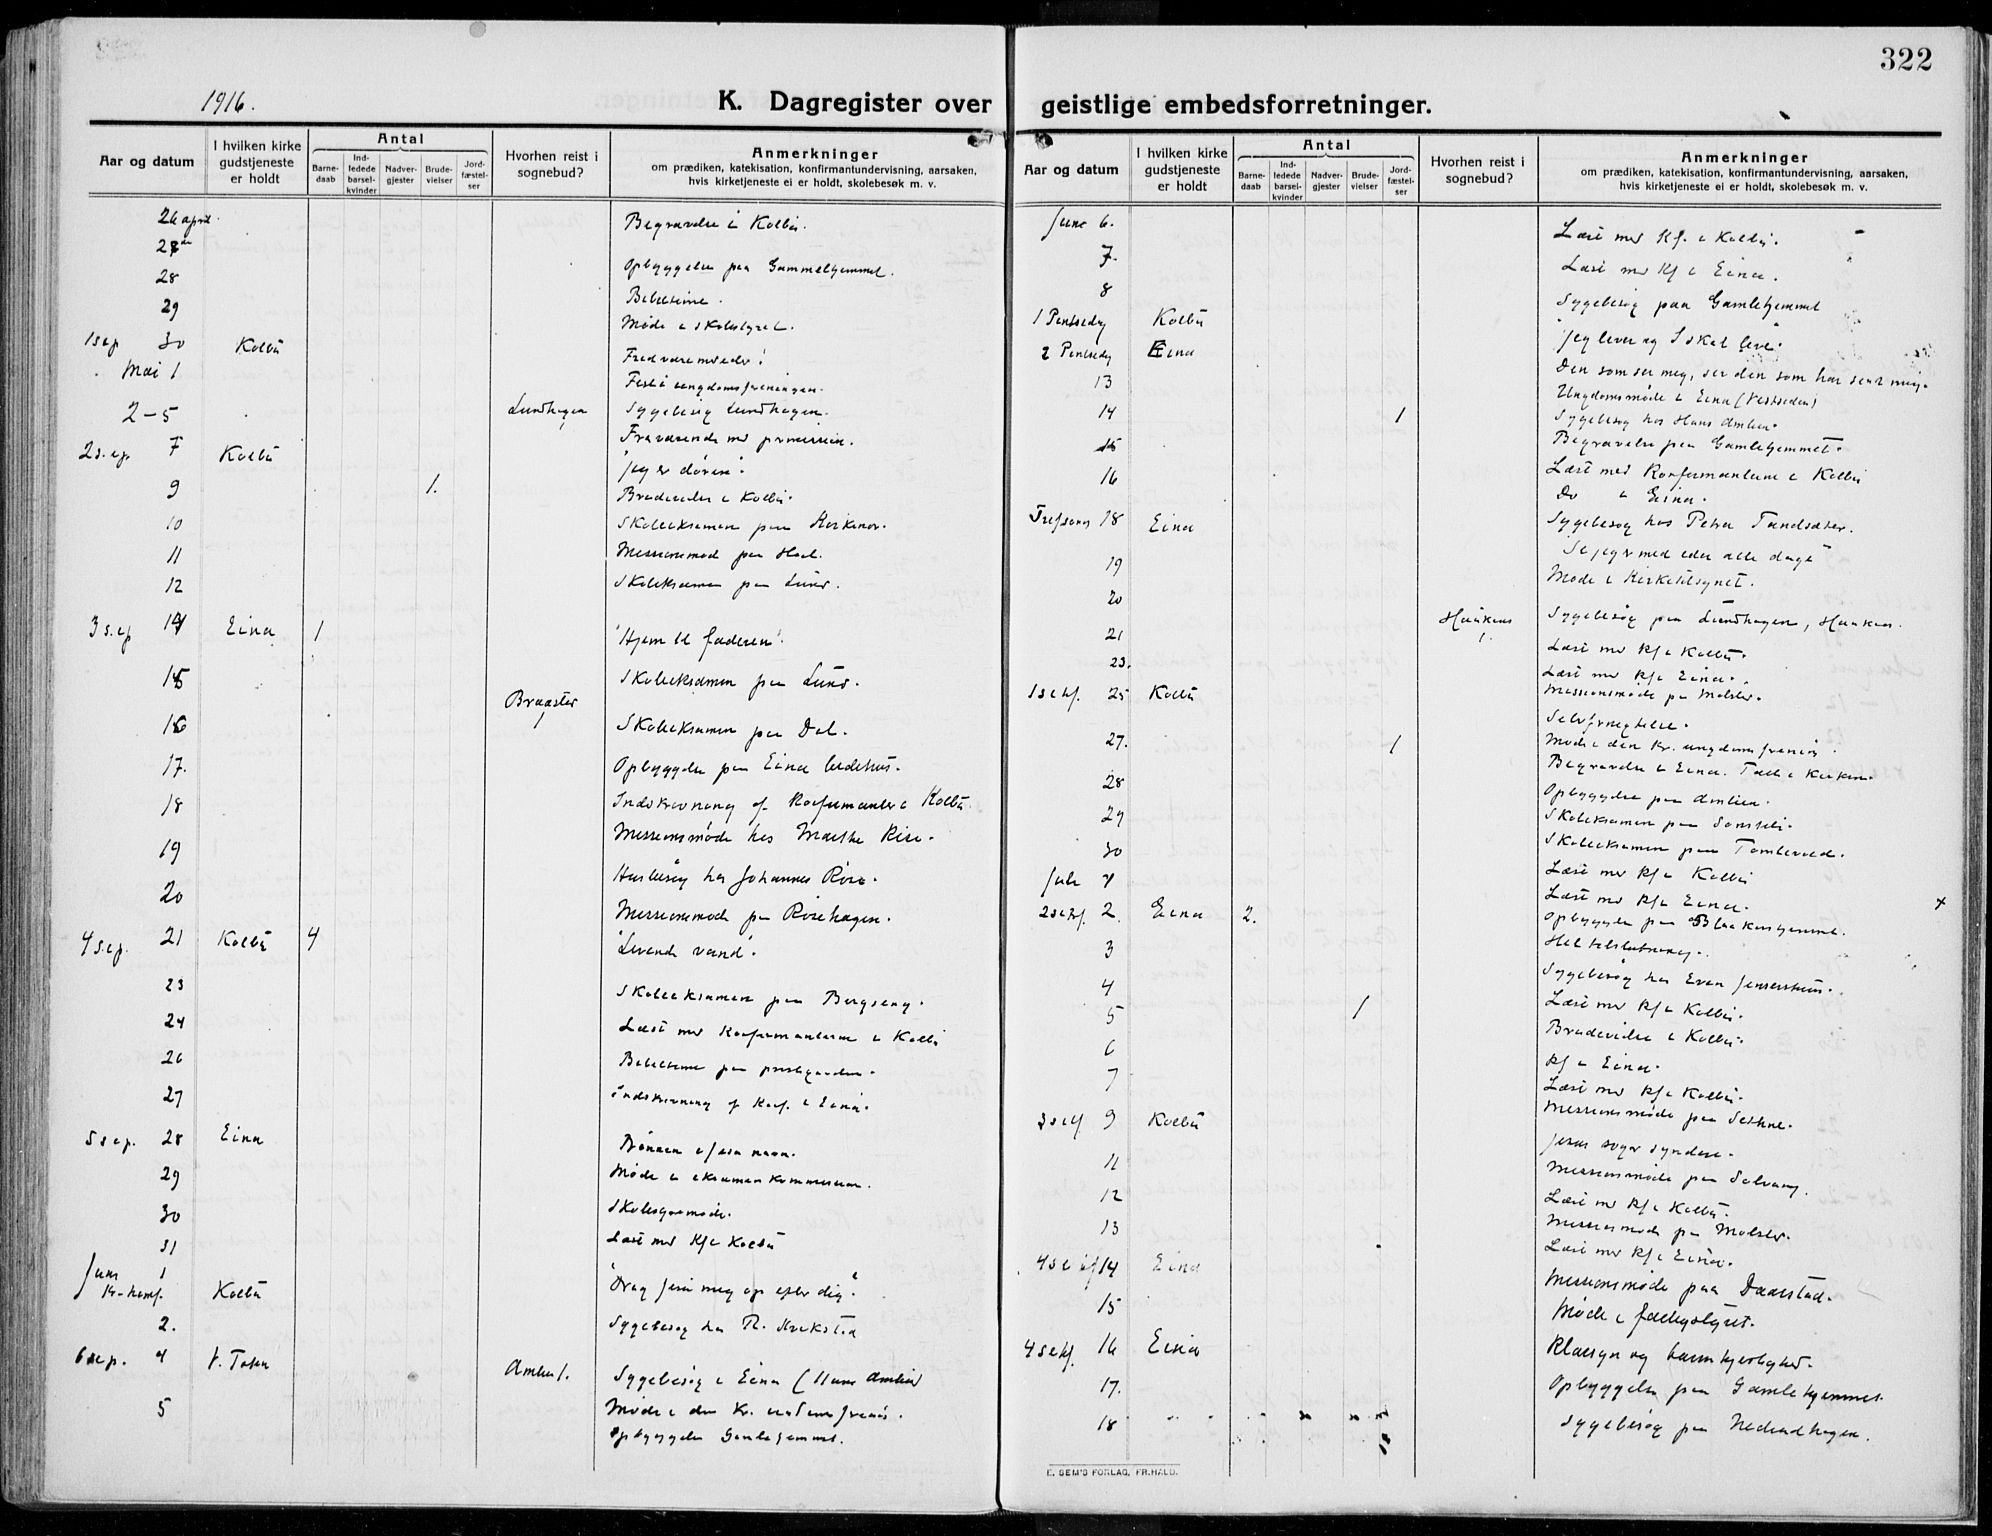 322
1916.
K. Dagregister over geistlige embedsforretninger.
Aar og datum
I hvilken kirke gudstjeneste er holdt
Antal
Barne-daab
Ind-ledede barsel-kvinder
Nadver-gjester
Brude-vielser
Jord-fæstel-ser
Hvorhen reist i sognebud?
Anmerkninger
om prædiken, katekisation, konfirmantundervisning, aarsaken, hvis kirketjeneste ei er holdt, skolebesøk m. v.
26 april Begravelse i Kolbu.
28
28 Opbyggelse paa Gammelhjemmet.
29 Bibeltime.
Møde i skolestyret.
1 s.e.p. 30 Kolbu Fred være med eder!
Mai 1 Fest i ungdomsforeningen.
2-5 Lundhagen Sygebesøg Lundhagen.
Fraværende med permission.
2 s.e.p. 7 Kolbu "Jeg er døren".
9 1. Brudevielse i Kolbu.
10 Skoleeksamen paa
11 Missionsmøde paa
12 Skoleeksamen paa Lund.
3 s.e.p. 14 Eina 1 "Hjem til faderen".
15 Skoleeksamen paa Lund.
Braaster 1
16 Skoleeksamen paa Dal.
17. Opbyggelse paa Eina bedehus.
18 Indskrivning af konfirmanter i Kolbu.
19 Missionsmøde hos Marthe Rise.
20 Husbesøg hos Johannes Rise.
Missionsmøde paa Risehagen.
4 s.e.p. 21 Kolbu 4 "Levende vand".
23 Skoleeksamen paa Bergseng.
24 Læst med konfirmanterne i Kolbu
26 Bibeltime paa prestegaarden.
27 Indskrivning af Konf. i Eina.
5 s.e.p. 28 Eina Bønnen i Jesu navn.
29 Møde i eksamenskommission.
30
31 Læst med Kf i Kolbu
Juni 1
Kr. himf. Kolbu "Drag Jesu meg op efter dig".
2. Sygebesøg hos
6 s.e.p. 4 V. Toten Amlien 1. Sygebesøg i Eina (Hans Amlien)
5 Møde i den Kr. ungdomsforening.
Opbyggelse Gamlehjemmet.
Aar og datum
I hvilken kirke gudstjeneste er holdt
Antal
Barne-daab
Ind-ledede barsel-kvinder
Nadver-gjester
Brude-vielser
Jord-fæstel-ser
Hvorhen reist i sognebud?
Anmerkninger
om prædiken, katekisation, konfirmantundervisning, aarsaken, hvis kirketjeneste ei er holdt, skolebesøk m. v.
Juni 6. Læst med Kf. i Kolbu.
7. Læst med Kf i Eina.
8 Sygebesøg paa Gamlehjemmet
1 Pinsedag Kolbu "Jeg lever og I skal leve".
2 Pinsedag Eina Den som ser meg, ser den som har sent mig.
13 Ungdomsmøde i Eina (Vestsiden)
14 1 Sygebesøg hos Hans Amlien.
15 Begravelse paa Gamlehjemmet.
16 Læst med Konfirmanterne i Kolbu
Do i Eina.
Trefsøns 18 Eina Sygebesøg hos Petra
19 "Se jeg er med eder alle dage"
20 Møde i Kirketilsynet.
21 Haakens 1. Sygebesøg paa Lundhagen, Haakens.
23. Læst med Kf i Kolbu.
Læst med Kf i Eina.
1 s.e.tf. 25 Kolbu Missionsmøde paa Molster.
Selvfornegtelse.
27. 1 Møde i den Kr. ungdomsforening.
Begravelse i Eina. Tale i kirken.
28 Opbyggelse paa Amlien.
29 Skoleeksamen paa
30 Skoleeksamen paa Tømlevold.
Juli 1 Læst med Kf i Kolbu
Læst med Kf i Eina.
2 s.e.tf. 2. Eina 2. Opbyggelse paa
3
4 Sygebesøg hos Even
5 1 Læst med Kf i Kolbu.
Brudevielse i Kolbu.
6 Kf i Eina.
7 Læst med Kf i Kolbu.
Missionsmøde paa Sethne.
3 s.e.tf 9 Kolbu Jesus søger syndere.
11 Missionsmøde paa Solvang.
12 Læst med Kf i Kolbu.
13 Missionsmøde paa Molster.
Læst med Kf i Eina.
4 s.e.tf 14 Eina Missionsmøde paa
15 Møde i fattigstyret.
4 s.e.tf. 16 Eina Klarsyn og barmhjertighed.
17. Opbyggelse paa Gamlehjemmet
18 Sygebesøg paa
E. SEM'S FORLAG, FR.HALD.